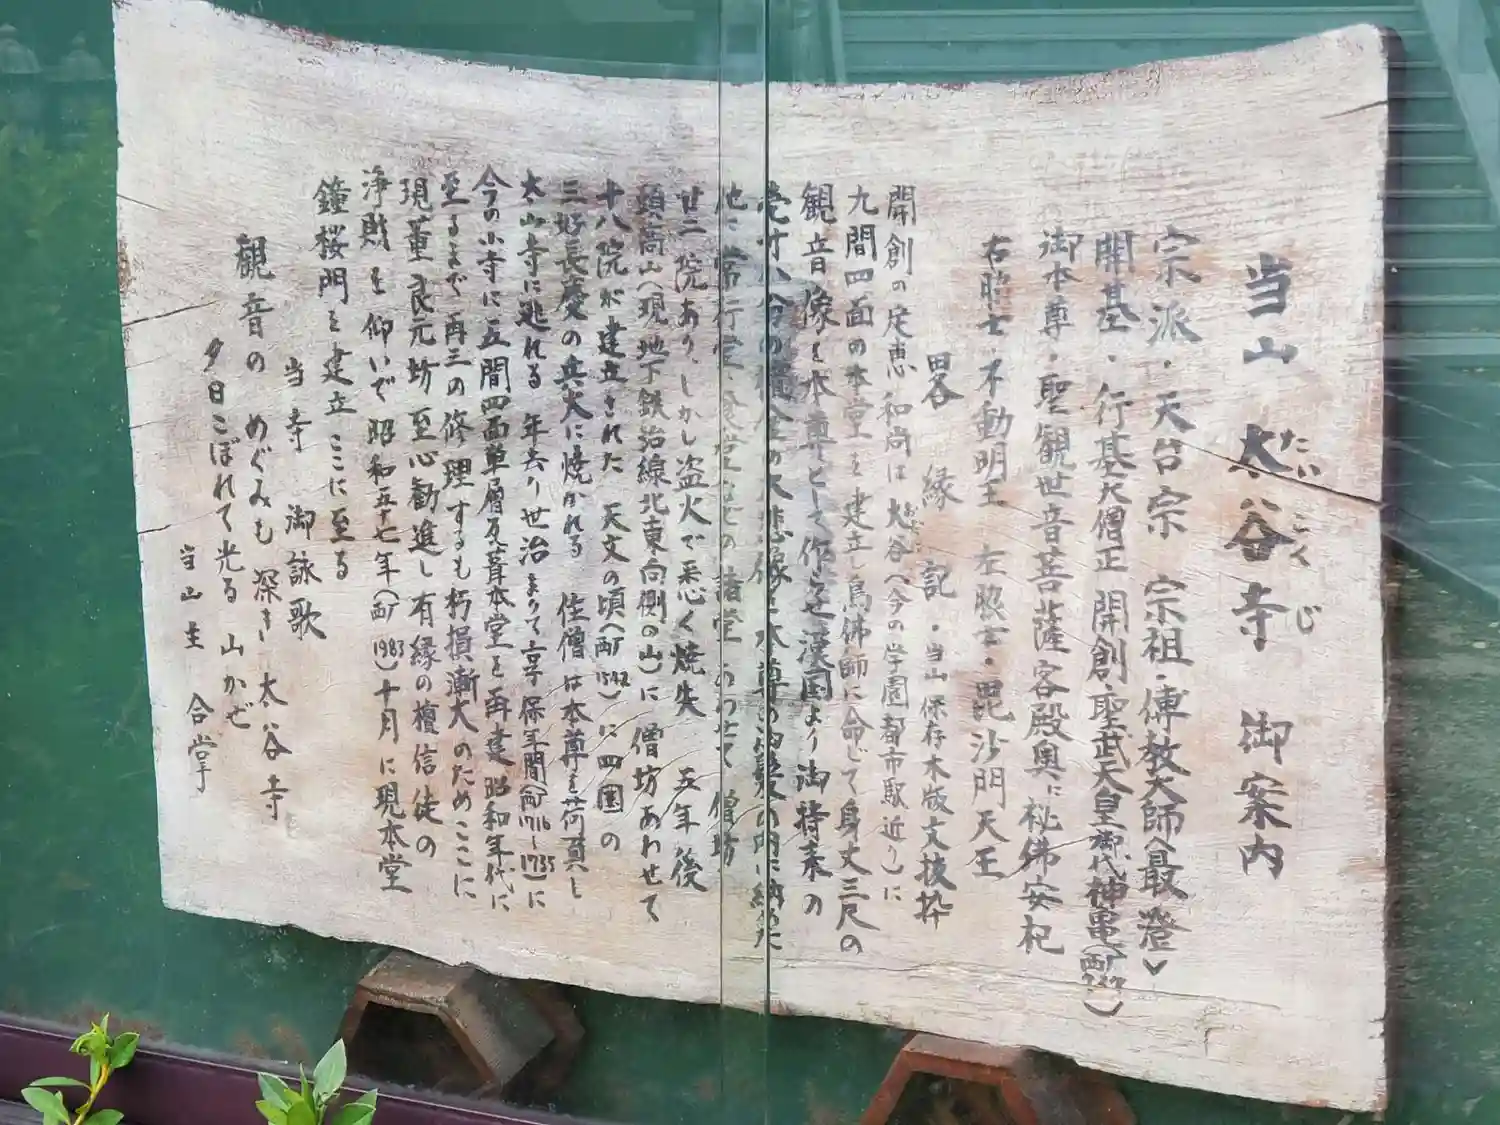 当山 太谷寺 御案内
たい こく じ
宗派・天台宗 宗祖・傳教大師〈最澄〉
開基・行基大僧正 開創・聖武天皇御代神亀(西暦
御本尊・聖観世音菩薩 客殿奥に秘佛安祀
右脇士・不動明王 左脇士・毘沙門天王
畧縁記・当山保存木版文抜粋
開創の定恵和尚は大谷(今の学園都市駅近り)に
九間四面の本堂を建立し鳥佛師に命じて身丈三尺の
観音像を本尊として作らせ漢国より御持来の
八分の 金の大悲像を本尊の 内に納めた
他に常行堂、 などの諸堂 あわせて 僧坊
廿二院あり、しかし盗火で悉く焼失 五年後
頭高山(現地下鉄沿線北東向側の山)に僧坊あわせて
十八院が建立された 天文の頃(西 1542)に四国の
三好長慶の兵火に焼かれる 住僧は本尊を荷負し
太山寺に逃れる 年去り世治まりて享保年間(西 1716~1735)に
今の小寺に五間四面単層瓦葺本堂を再建 昭和年代に
至るまで再三の修理するも朽損漸大のためここに
現董良元坊至心勧進し有縁の檀信徒の
浄財を仰いで昭和五十七年(西 1983)十月に現本堂
鐘桜門を建立ここに至る
当寺 御詠歌 太谷寺
観音の めぐみも深き
夕日こぼれて光る 山かぜ
当山主 合掌